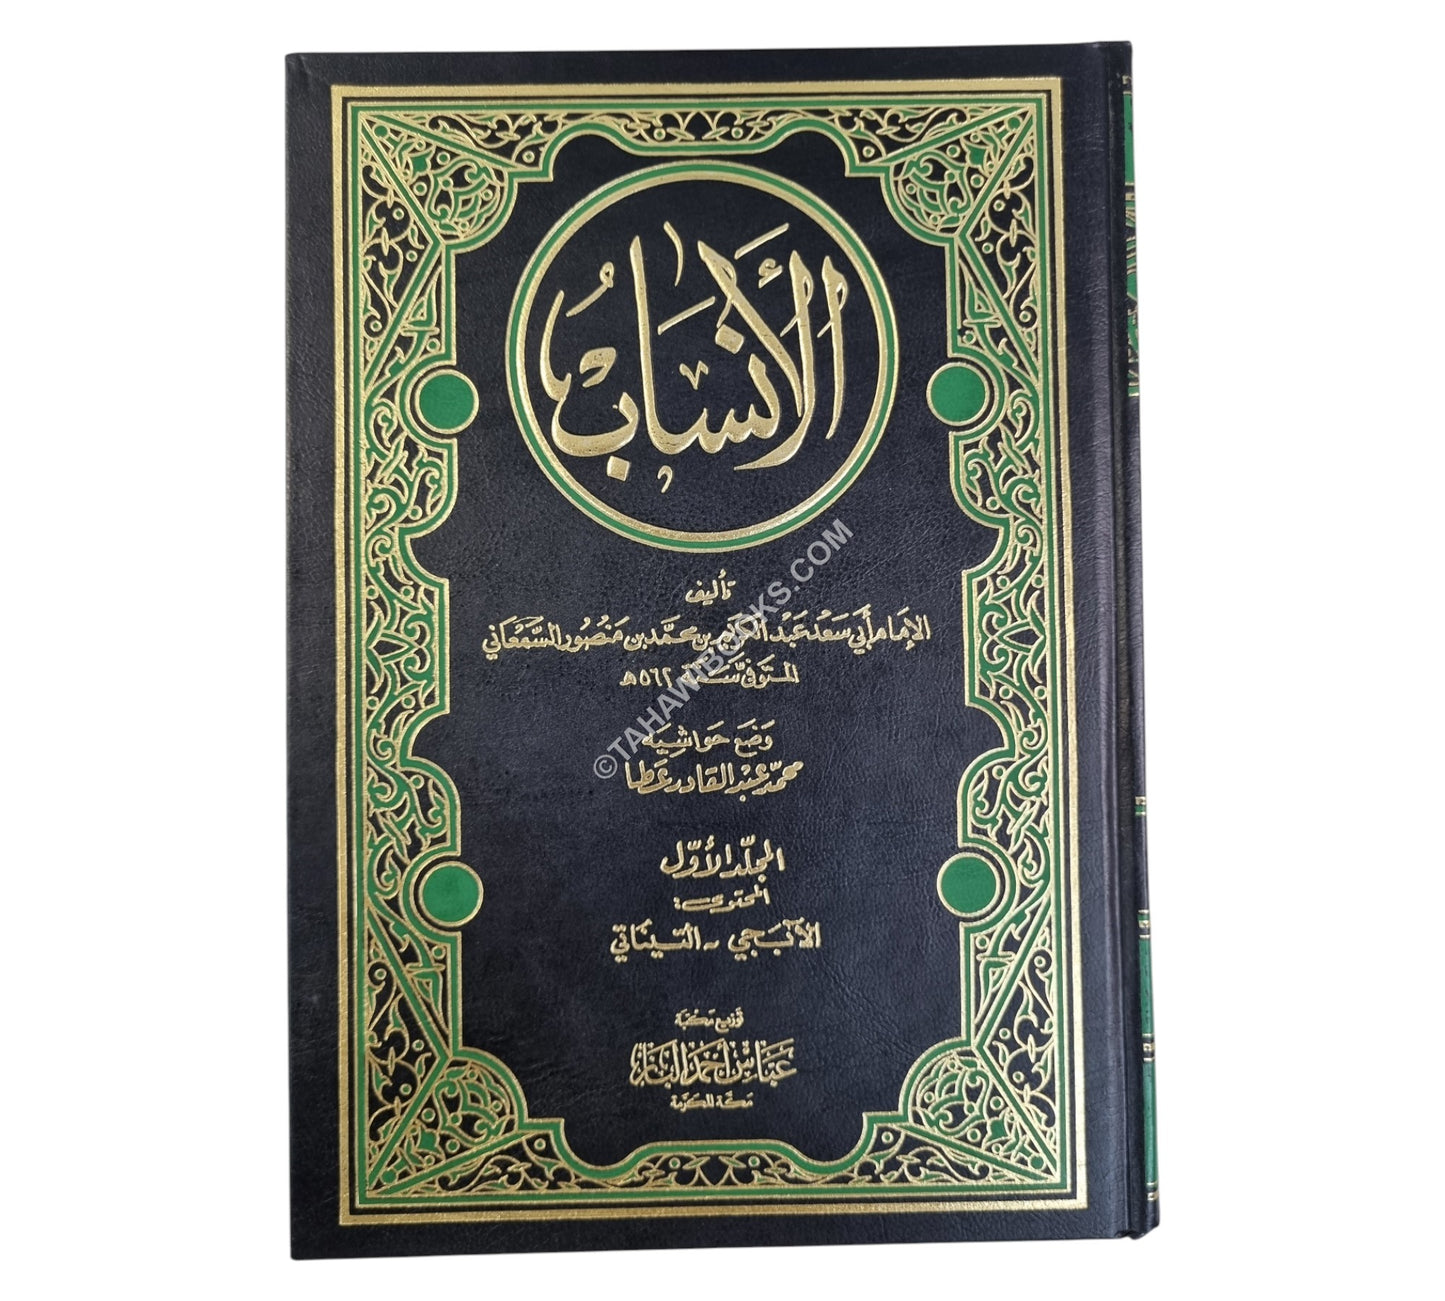 الأنساب
تأليف
الإمام أبي سعد عبد الكريم بن محمد بن منصور السمعاني
المتوفى سنة ٥٦٢ هـ
وضع حواشيه
محمد عبد القادر عطا
المجلد الأول
المحتوى:
الآبجي - التيناتي
توزيع مكتبة
عباس أحمد الباز
مكة المكرمة
©TAHAWIBOOKS.COM